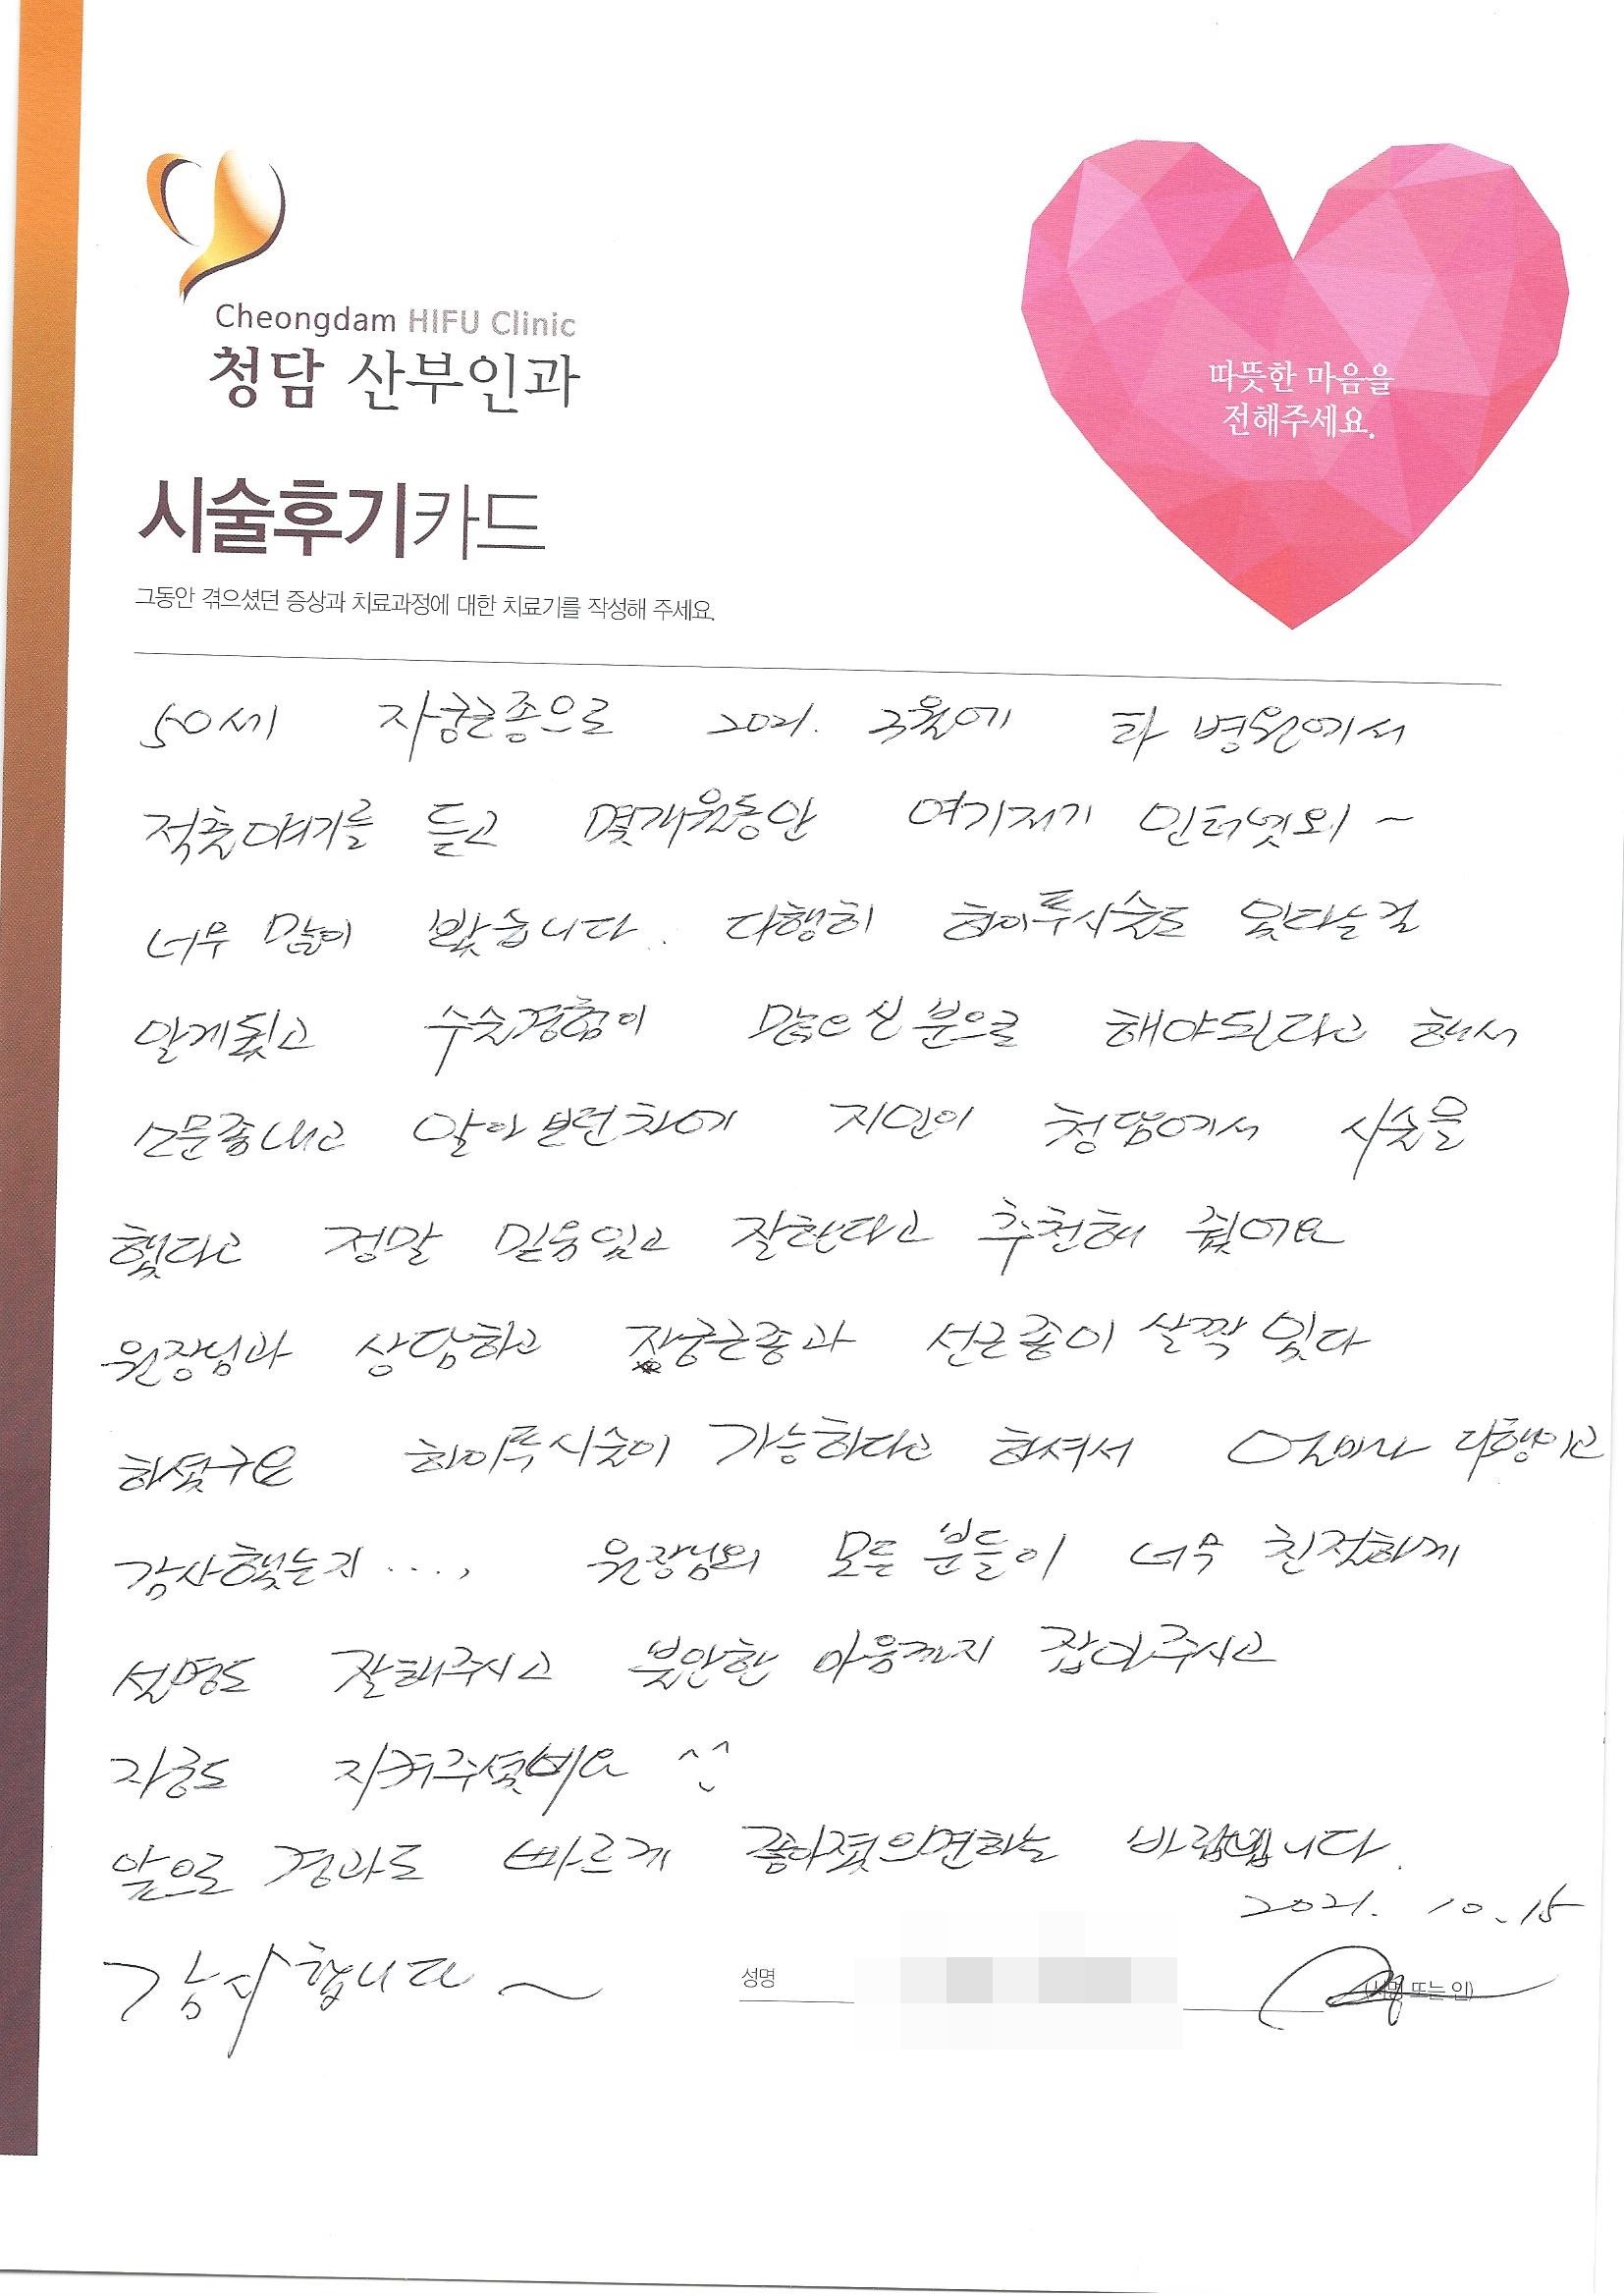 Cheongdam HIFU Clinic
청담 산부인과
따뜻한 마음을
전해주세요.
시술후기카드
그동안 겪으셨던 증상과 치료과정에 대한 치료기를 작성해 주세요.
50세 자궁근종으로 2021. 3월에 타 병원에서
적출얘기를 듣고 몇개월동안 여기저기 인터넷외~
너무 많이 봤습니다. 다행히 하이푸시술도 있다는걸
알게됐고 수술경험이 많으신분으로 해야된다고 해서
소문종내고 알아보던차에 지인이 청담에서 시술을
했다고 정말 믿음있고 잘한다고 추천해 줬어요
원장님과 상담하고 자궁근종과 선근종이 살짝 있다
하셨구요 하이푸시술이 가능하다고 하셔서 얼마나 다행이고
감사했는지....,  원장님외 모든분들이 너무 친절하게
설명도 잘해주시고 불안한 마음까지 잡아주시고
자궁도 지켜주셨네요 ^^
앞으로 경과도 빠르게 좋아졌으면하는 바램입니다.
2021. 10. 15
감사합니다~
성명
(서명 또는 인)